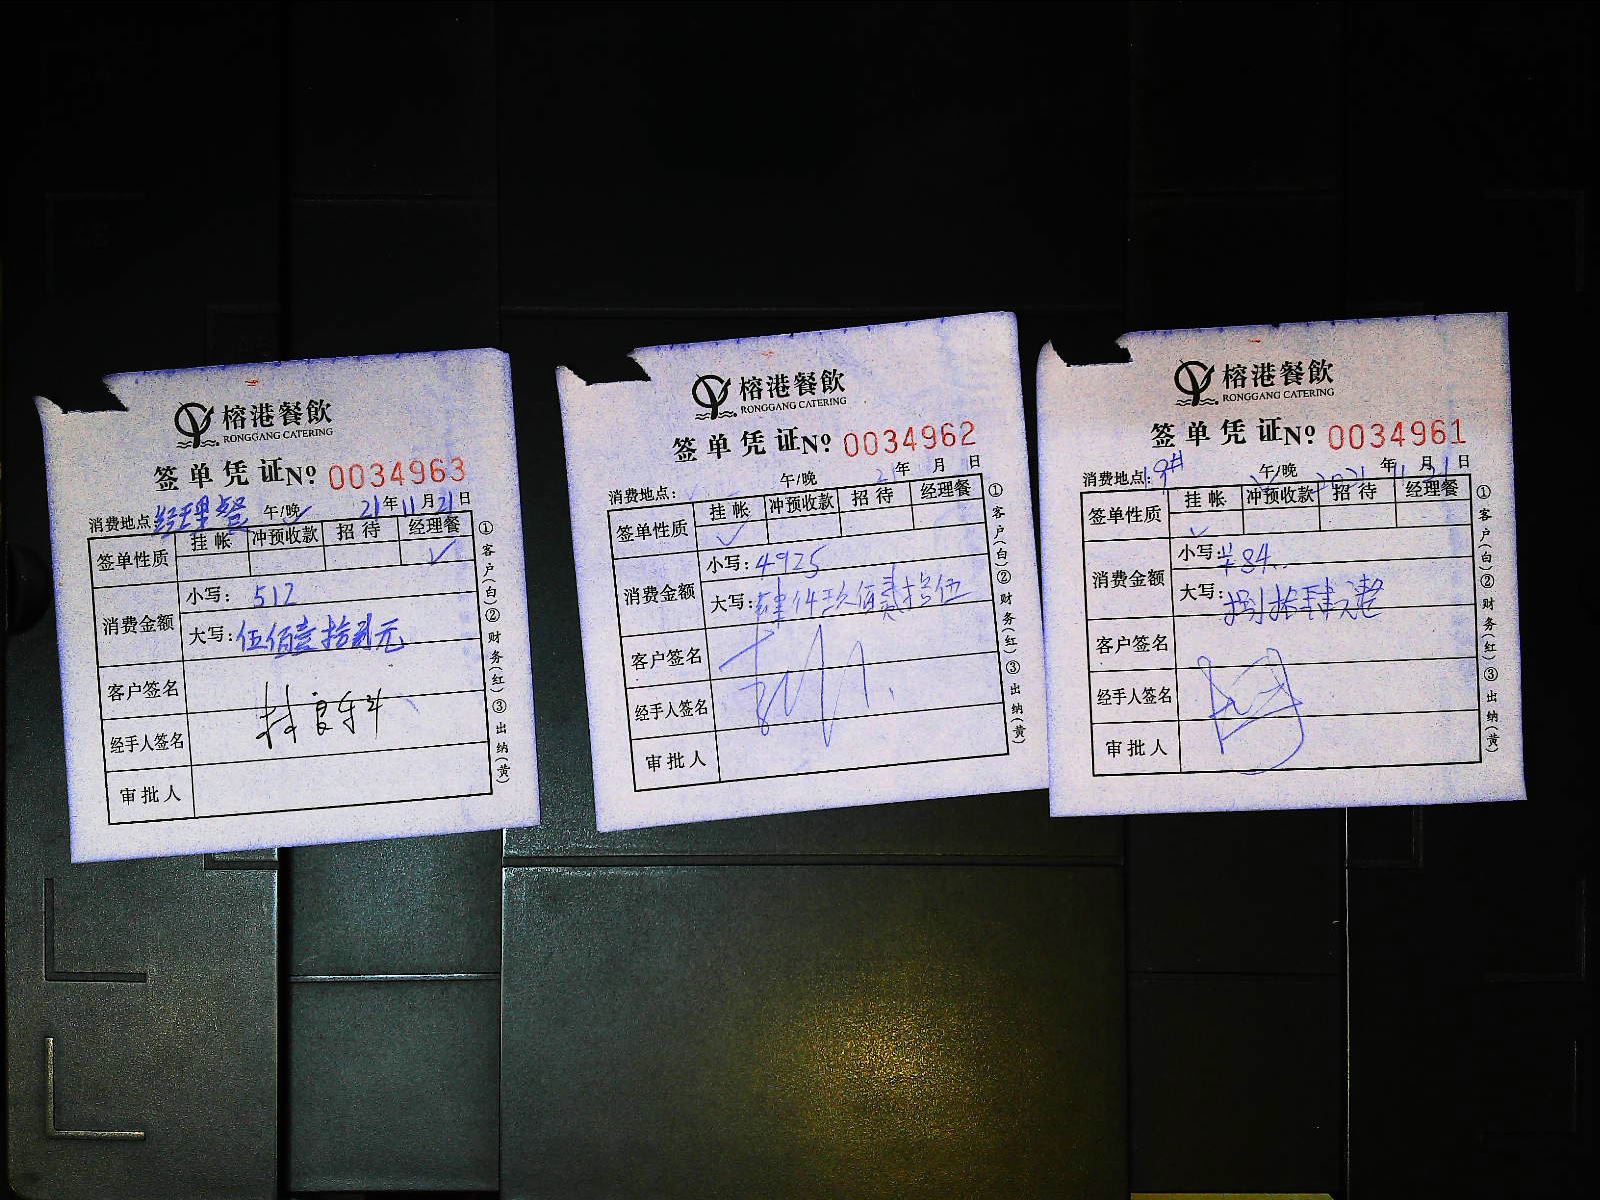 榕港餐飲
RONGGANG CATERING
签单凭证№ 0034963
消费地点 经理餐 午/晚 21年11月21日
签单性质 挂帐 冲预收款 招待 经理餐
✓
消费金额 小写: 512
大写: 伍佰壹拾贰元
客户签名
经手人签名
审批人
①客户(白)②财务(红)③出纳(黄)
榕港餐飲
RONGGANG CATERING
签单凭证№ 0034962
消费地点: 午/晚 21年 月 日
签单性质 挂帐 冲预收款 招待 经理餐
✓
消费金额 小写: 4925
大写: 肆仟玖佰贰拾伍
客户签名
经手人签名
审批人
①客户(白)②财务(红)③出纳(黄)
榕港餐飲
RONGGANG CATERING
签单凭证№ 0034961
消费地点: 19# 午/晚 2021年11月21日
签单性质 挂帐 冲预收款 招待 经理餐
✓
消费金额 小写: 半84..
大写: 捌拾肆元整
客户签名
经手人签名
审批人
①客户(白)②财务(红)③出纳(黄)